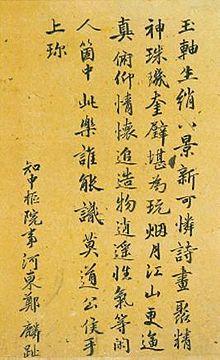 玉軸生綃八景新可憐詩畫聚精
神珠璣奎璧堪為玩烟月江山更逼
真俯仰情懷追造物逍遙性氣等閑
人箇中此樂誰能識莫道公侯手
上珎
知中枢院事河東鄭麟趾